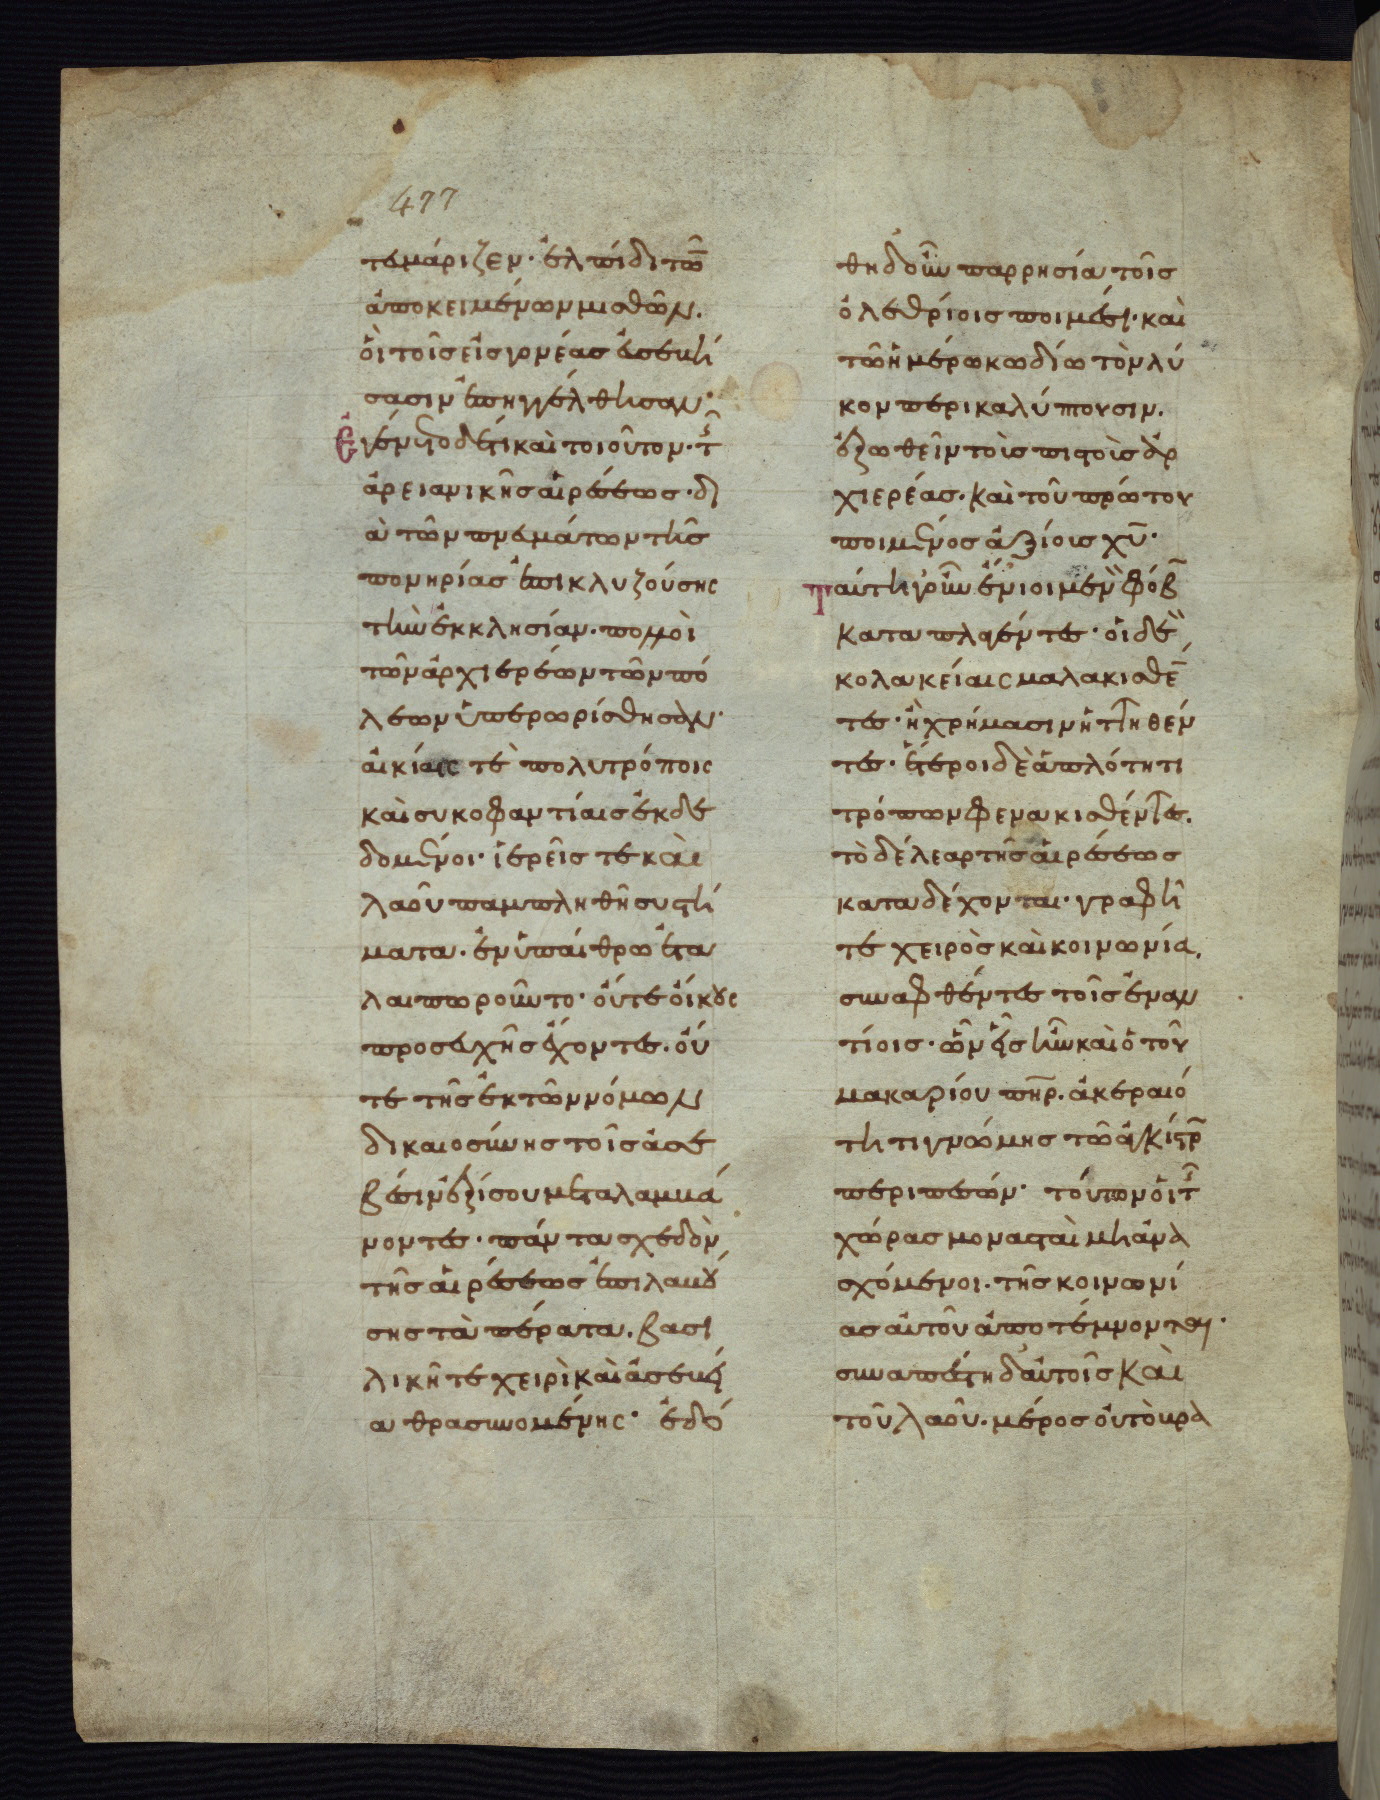 477
τεμάριζεν· ἐλπίδι τῶν
ἀποκειμένων μισθῶν.
οἳ τοῖς εἰς γονέας εὐσεβή
σασιν ἐπηγγέλθησαν·
Ἐγένετο δέ τι καὶ τοιοῦτον· τῆς
ἀρειανικῆς αἱρέσεως· δι
ὰ τῶν πνευμάτων τῆς
πονηρίας ἐπικλυζούσης
τὴν ἐκκλησίαν. πολλοὶ
τῶν ἀρχιερέων τῶν πό
λεων ὑπερωρίσθησαν·
αἰκίαις τὲ πολυτρόποις
καὶ συκοφαντίαις ἐκδε
δομένοι· ἱερεῖς τε καὶ
λαοῦ παμπληθῆ συστή
ματα. ἐν ὑπαίθρω ἐτα
λαιπωροῦντο· οὔτε οἴκους
προσευχῆς ἔχοντες. οὔ
τε τῆς ἐκ τῶν νόμων
δικαιοσύνης τοῖς ἀσε
βέσιν ἐξίσου μεταλαμβά
νοντες· πάντα σχεδὸν
τῆς αἱρέσεως ἐπιλαβού
σης τὰ πέρατα. βασι
λικῆ τε χειρὶ καὶ ἀσεβεί
α θρασυνομένης· ἐδό
θη δ' οὖν παρρησία τοῖς
ὀλεθρίοις ποιμέσι· καὶ
τῶ ἡμέρω κωδίω τὸν λύ
κον περικαλύπτουσιν.
ἐξωθεῖν τοὺς πιστοὺς ἀρ
χιερέας. καὶ τοῦ πρώτου
ποιμένος ἀξίους χυ·
Ταύτη γοῦν ἔνιοι μὲν φόβω
καταπλαγέντες· οἱ δὲ
κολακείαις μαλακισθέν
τες· ἢ χρήμασιν ἡττηθέν
τες· ἕτεροι δὲ ἁπλότητι
τρόπων φενακισθέντες.
τὸ δέλεαρ τῆς αἱρέσεως
καταδέχονται· γραφῆ
τε χειρὸς καὶ κοινωνία,
συναφθέντες τοῖς ἐναν
τίοις· ὧν εἷς ἦν καὶ ὁ τοῦ
μακαρίου πηρ. ἀκεραιό
τητι γνώμης τῶ ἀγκίστρω
περιπεσών· τοῦτον οἱ τῆς
χώρας μονασταὶ μὴ ἀνα
σχόμενοι. τῆς κοινωνί
ας αὐτοῦ ἀποτέμνονται·
συναπέστη δ' αὐτοῖς καὶ
τοῦ λαοῦ. μέρος οὐ τὸ βρα